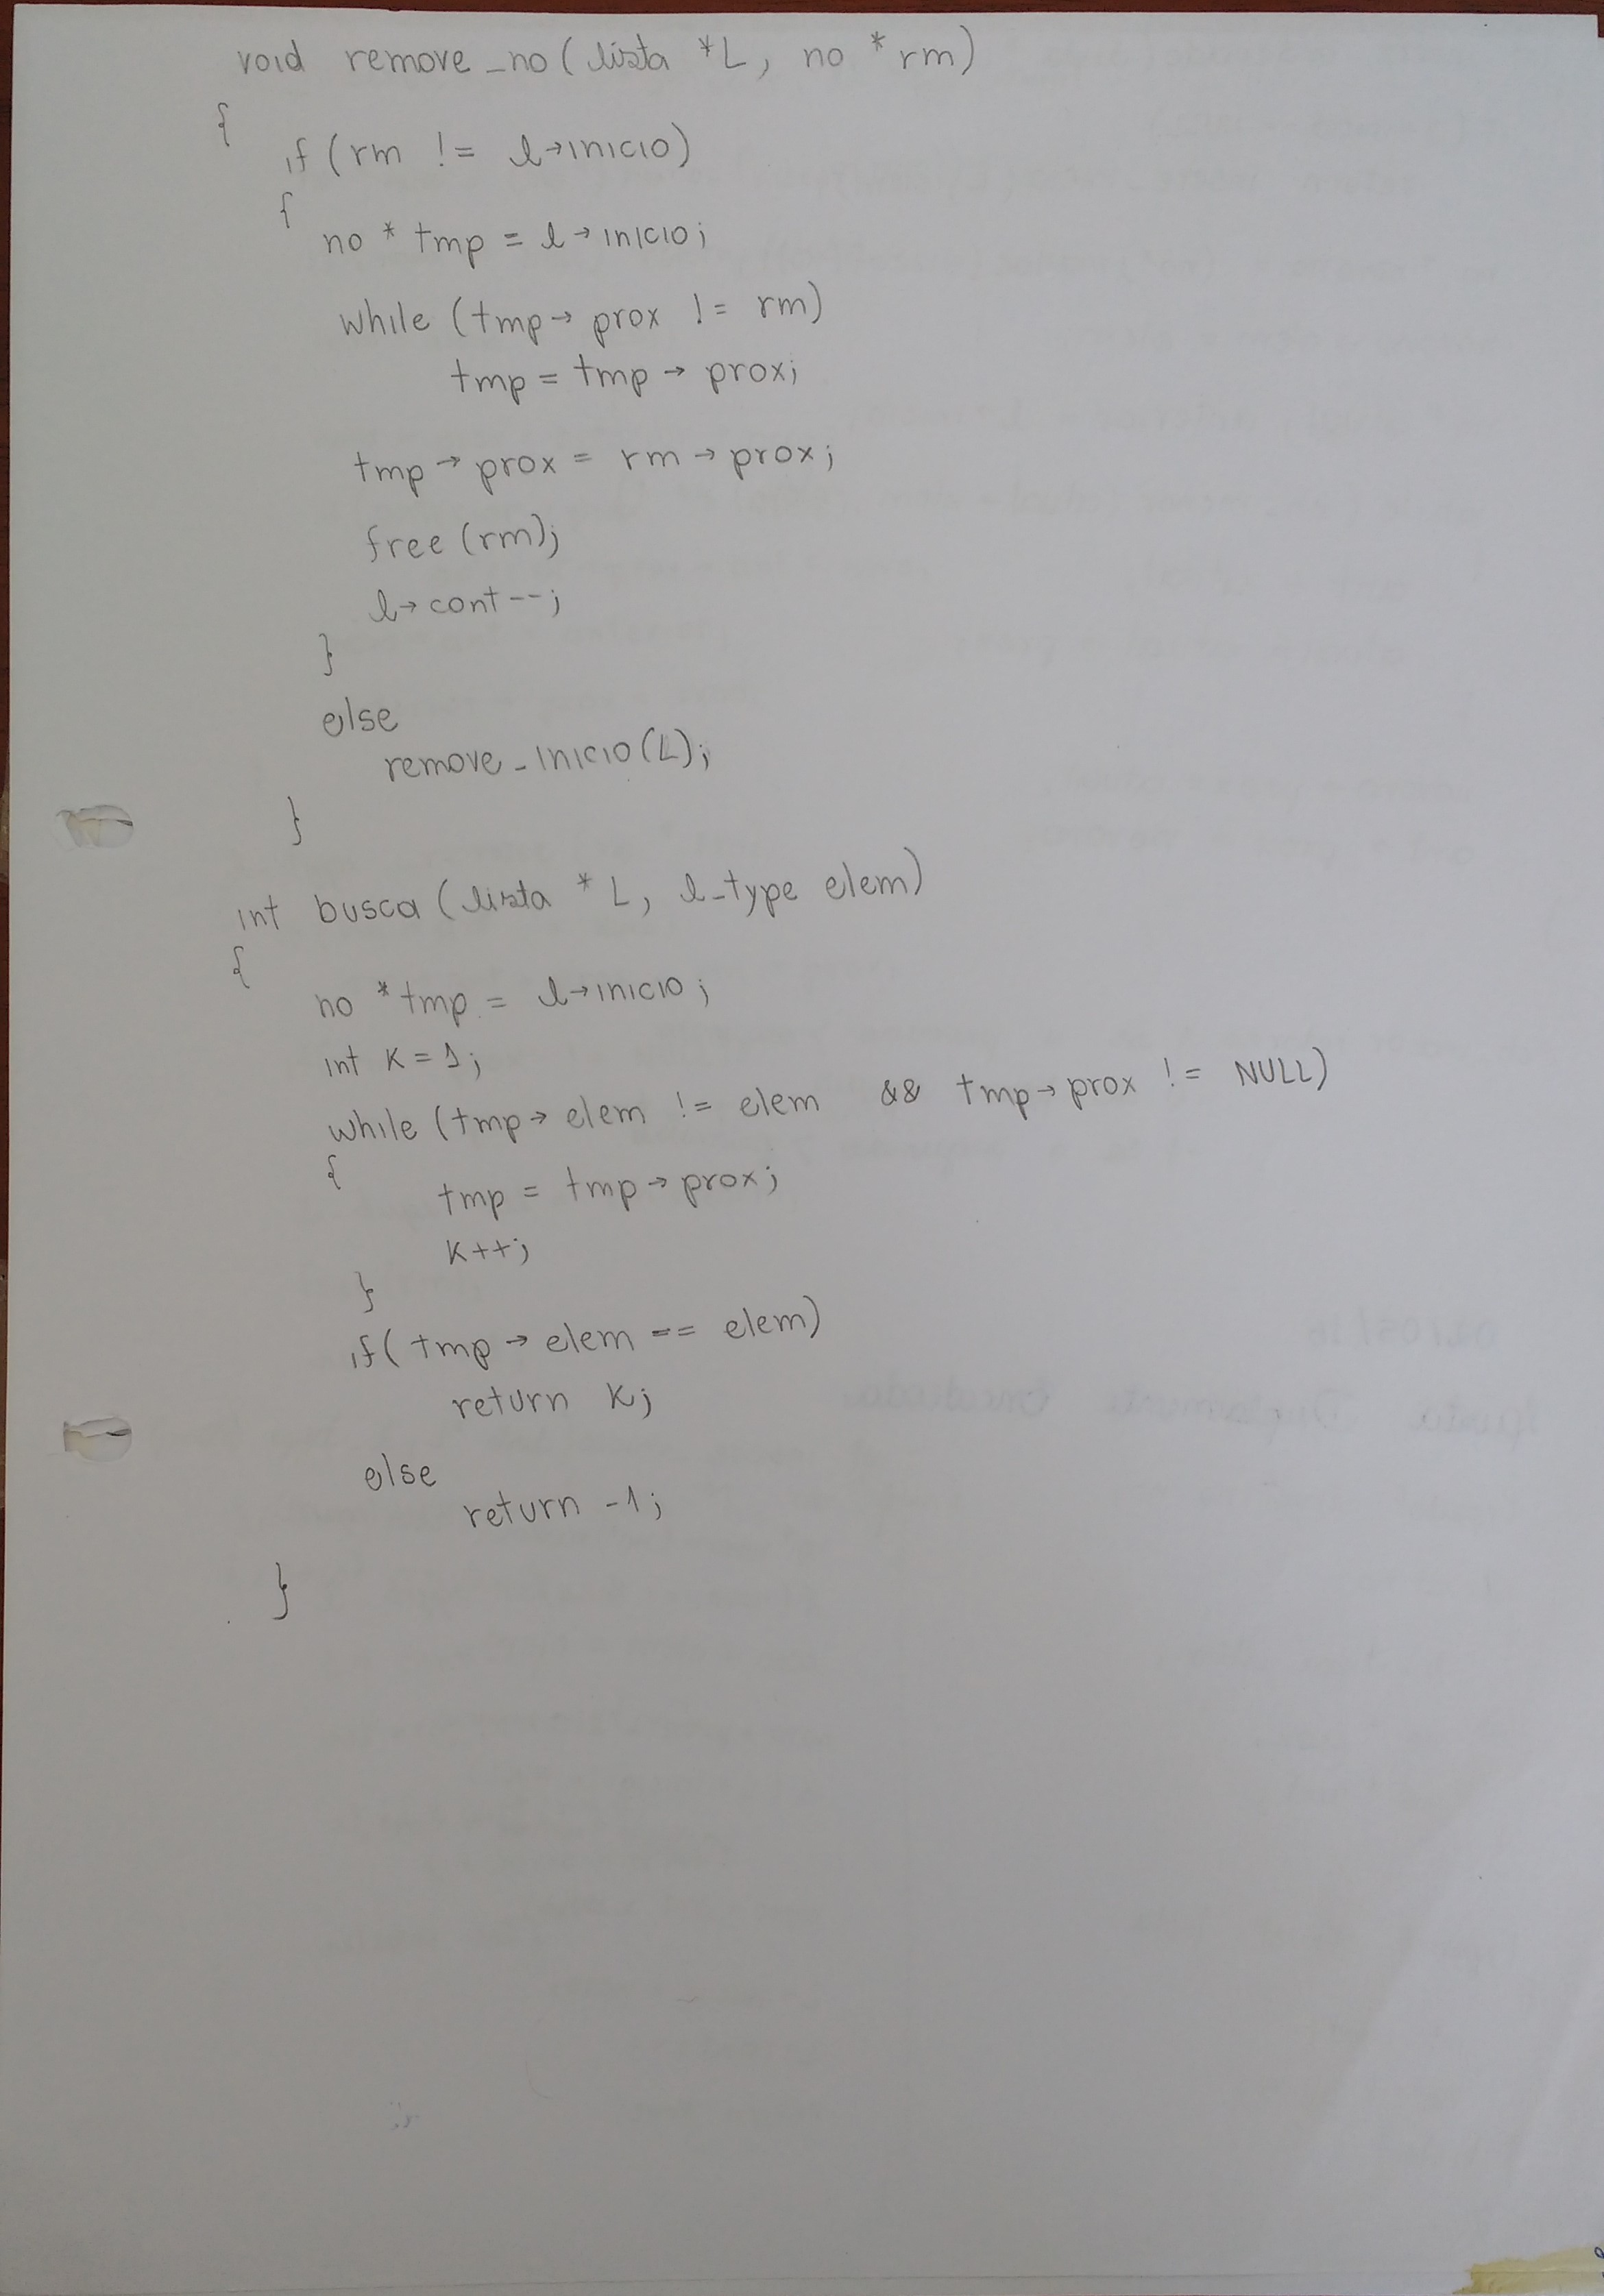 void remove_no(lista *L, no *rm)
{
if (rm != l→inicio)
{
no * tmp = l→inicio;
while (tmp→prox != rm)
tmp = tmp→prox;
tmp→prox = rm→prox;
free(rm);
l→cont--;
}
else
remove_inicio(L);
}
int busca(lista *L, l_type elem)
{
no *tmp = l→inicio;
int k=1;
while (tmp→elem != elem && tmp→prox != NULL)
{
tmp = tmp→prox;
k++;
}
if(tmp→elem == elem)
return k;
else
return -1;
}